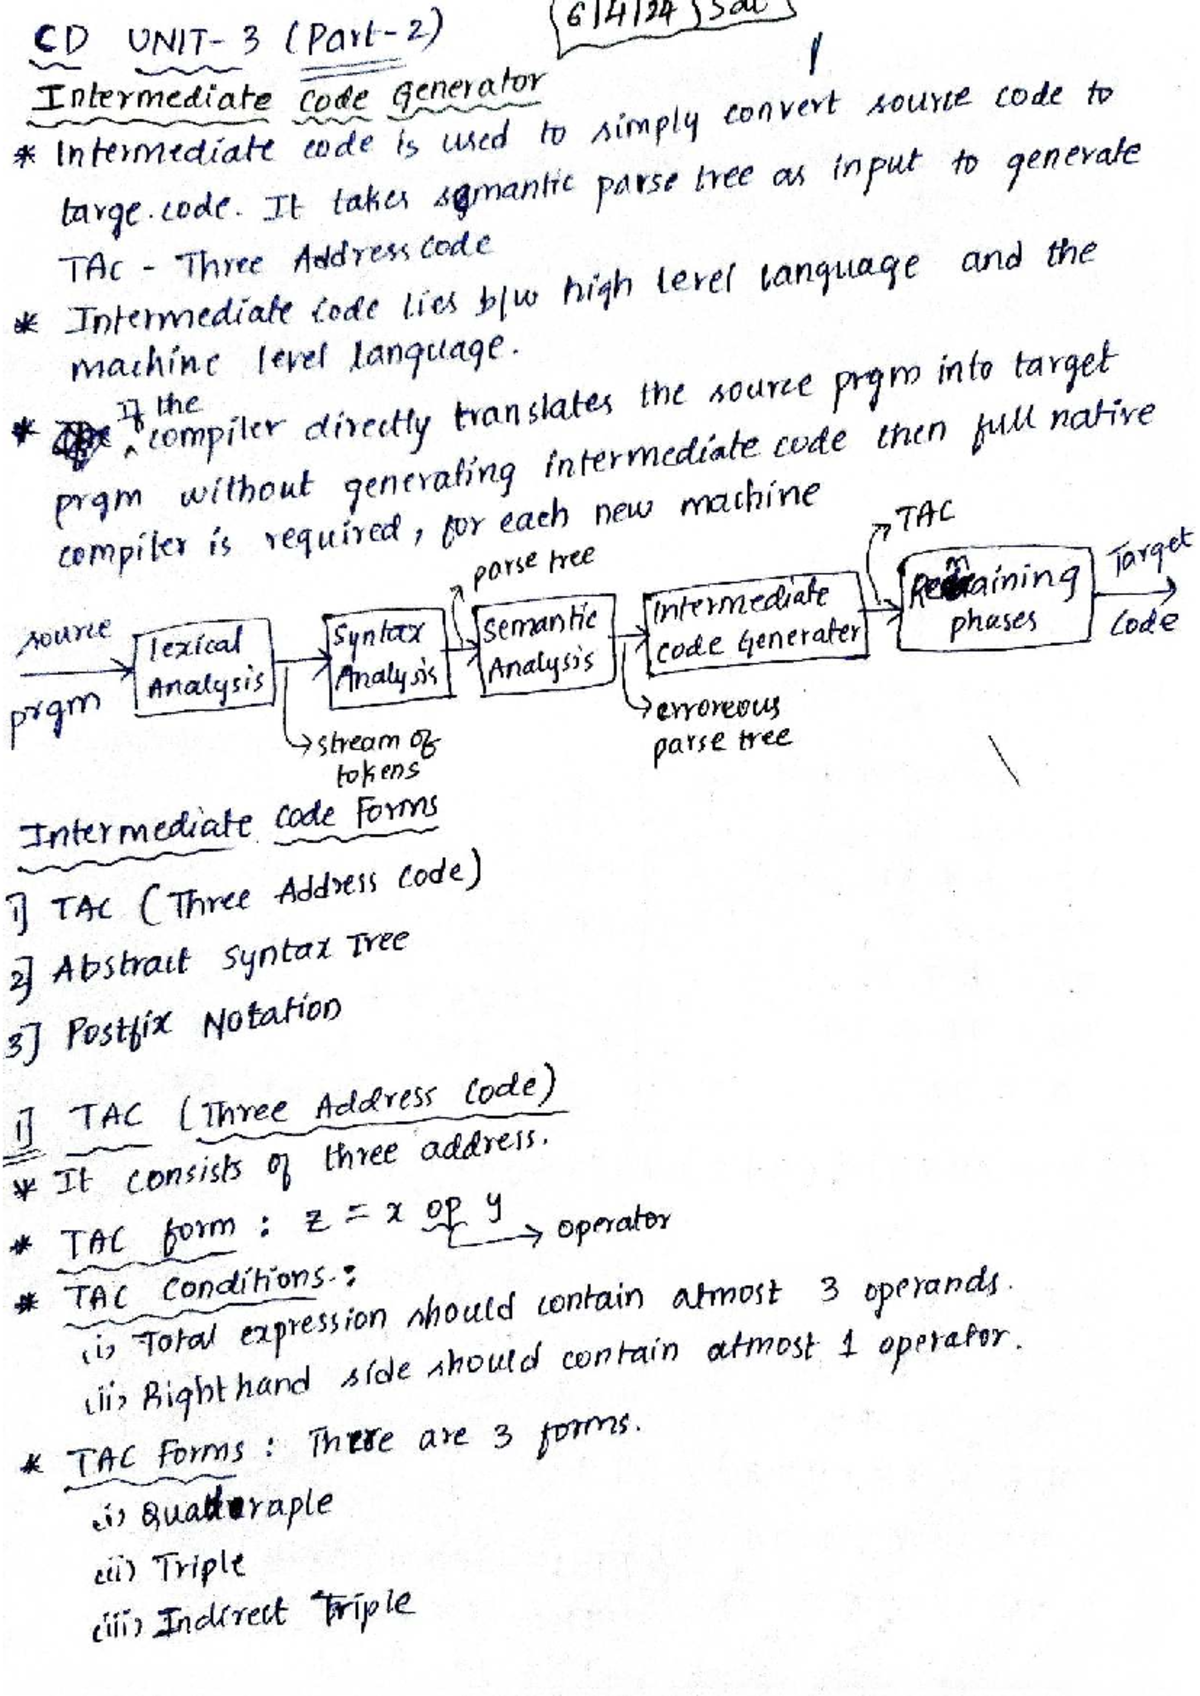 CD UNIT-3 (Part-2)
6/4/24 Sat
1
Intermediate Code Generator
* Intermediate code is used to simply convert source code to
targe.code. It takes semantic parse tree as input to generate
TAC - Three Address code
* Intermediate code lies b/w high level language and the
machine level language.
* If the compiler directly translates the source prgm into target
prgm without generating intermediate code then full native
compiler is required, for each new machine
source prgm
lexical Analysis
stream of tokens
Syntax Analysis
parse tree
Semantic Analysis
erroreous parse tree
Intermediate code Generater
TAC
Remaining phases
Target Code
Intermediate Code Forms
1] TAC (Three Address Code)
2] Abstract Syntax Tree
3] Postfix Notation
1] TAC (Three Address Code)
* It consists of three address.
* TAC form : z = x op y → operator
* TAC Conditions.:
(i) Total expression should contain atmost 3 operands.
(ii) Right hand side should contain atmost 1 operator.
* TAC Forms : There are 3 forms.
(i) Quadraple
(ii) Triple
(iii) Indirect Triple